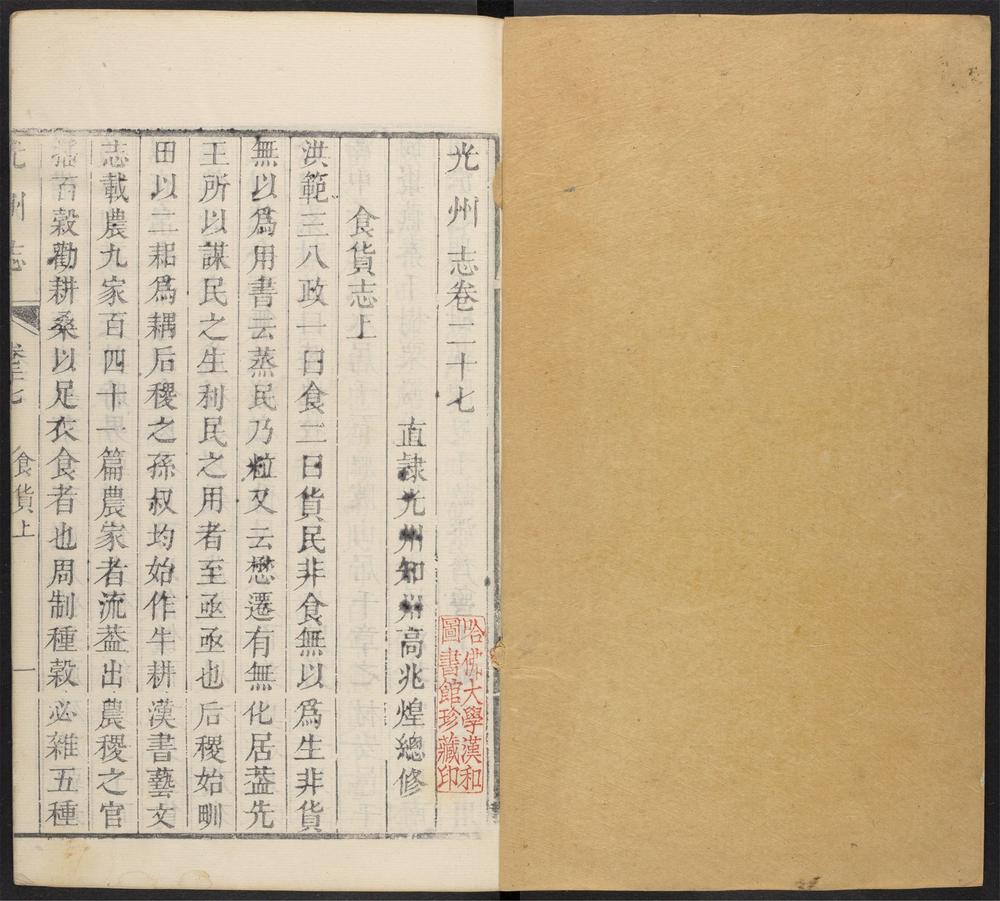 光州志卷二十七
直隸光州知州高兆煌總修
食貨志上
洪範三八政一曰食二曰貨民非食無以爲生非貨
無以爲用書云蒸民乃粒又云懋遷有無化居葢先
王所以謀民之生利民之用者至亟亟也后稷始甽
田以二耜爲耦后稷之孫叔均始作牛耕漢書藝文
志載農九家百四十一篇農家者流葢出農稷之官
播百穀勸耕桑以足衣食者也周制種穀必雜五種
光州志
卷二十七
食貨上
一
哈佛大學漢和
圖書館珍藏印